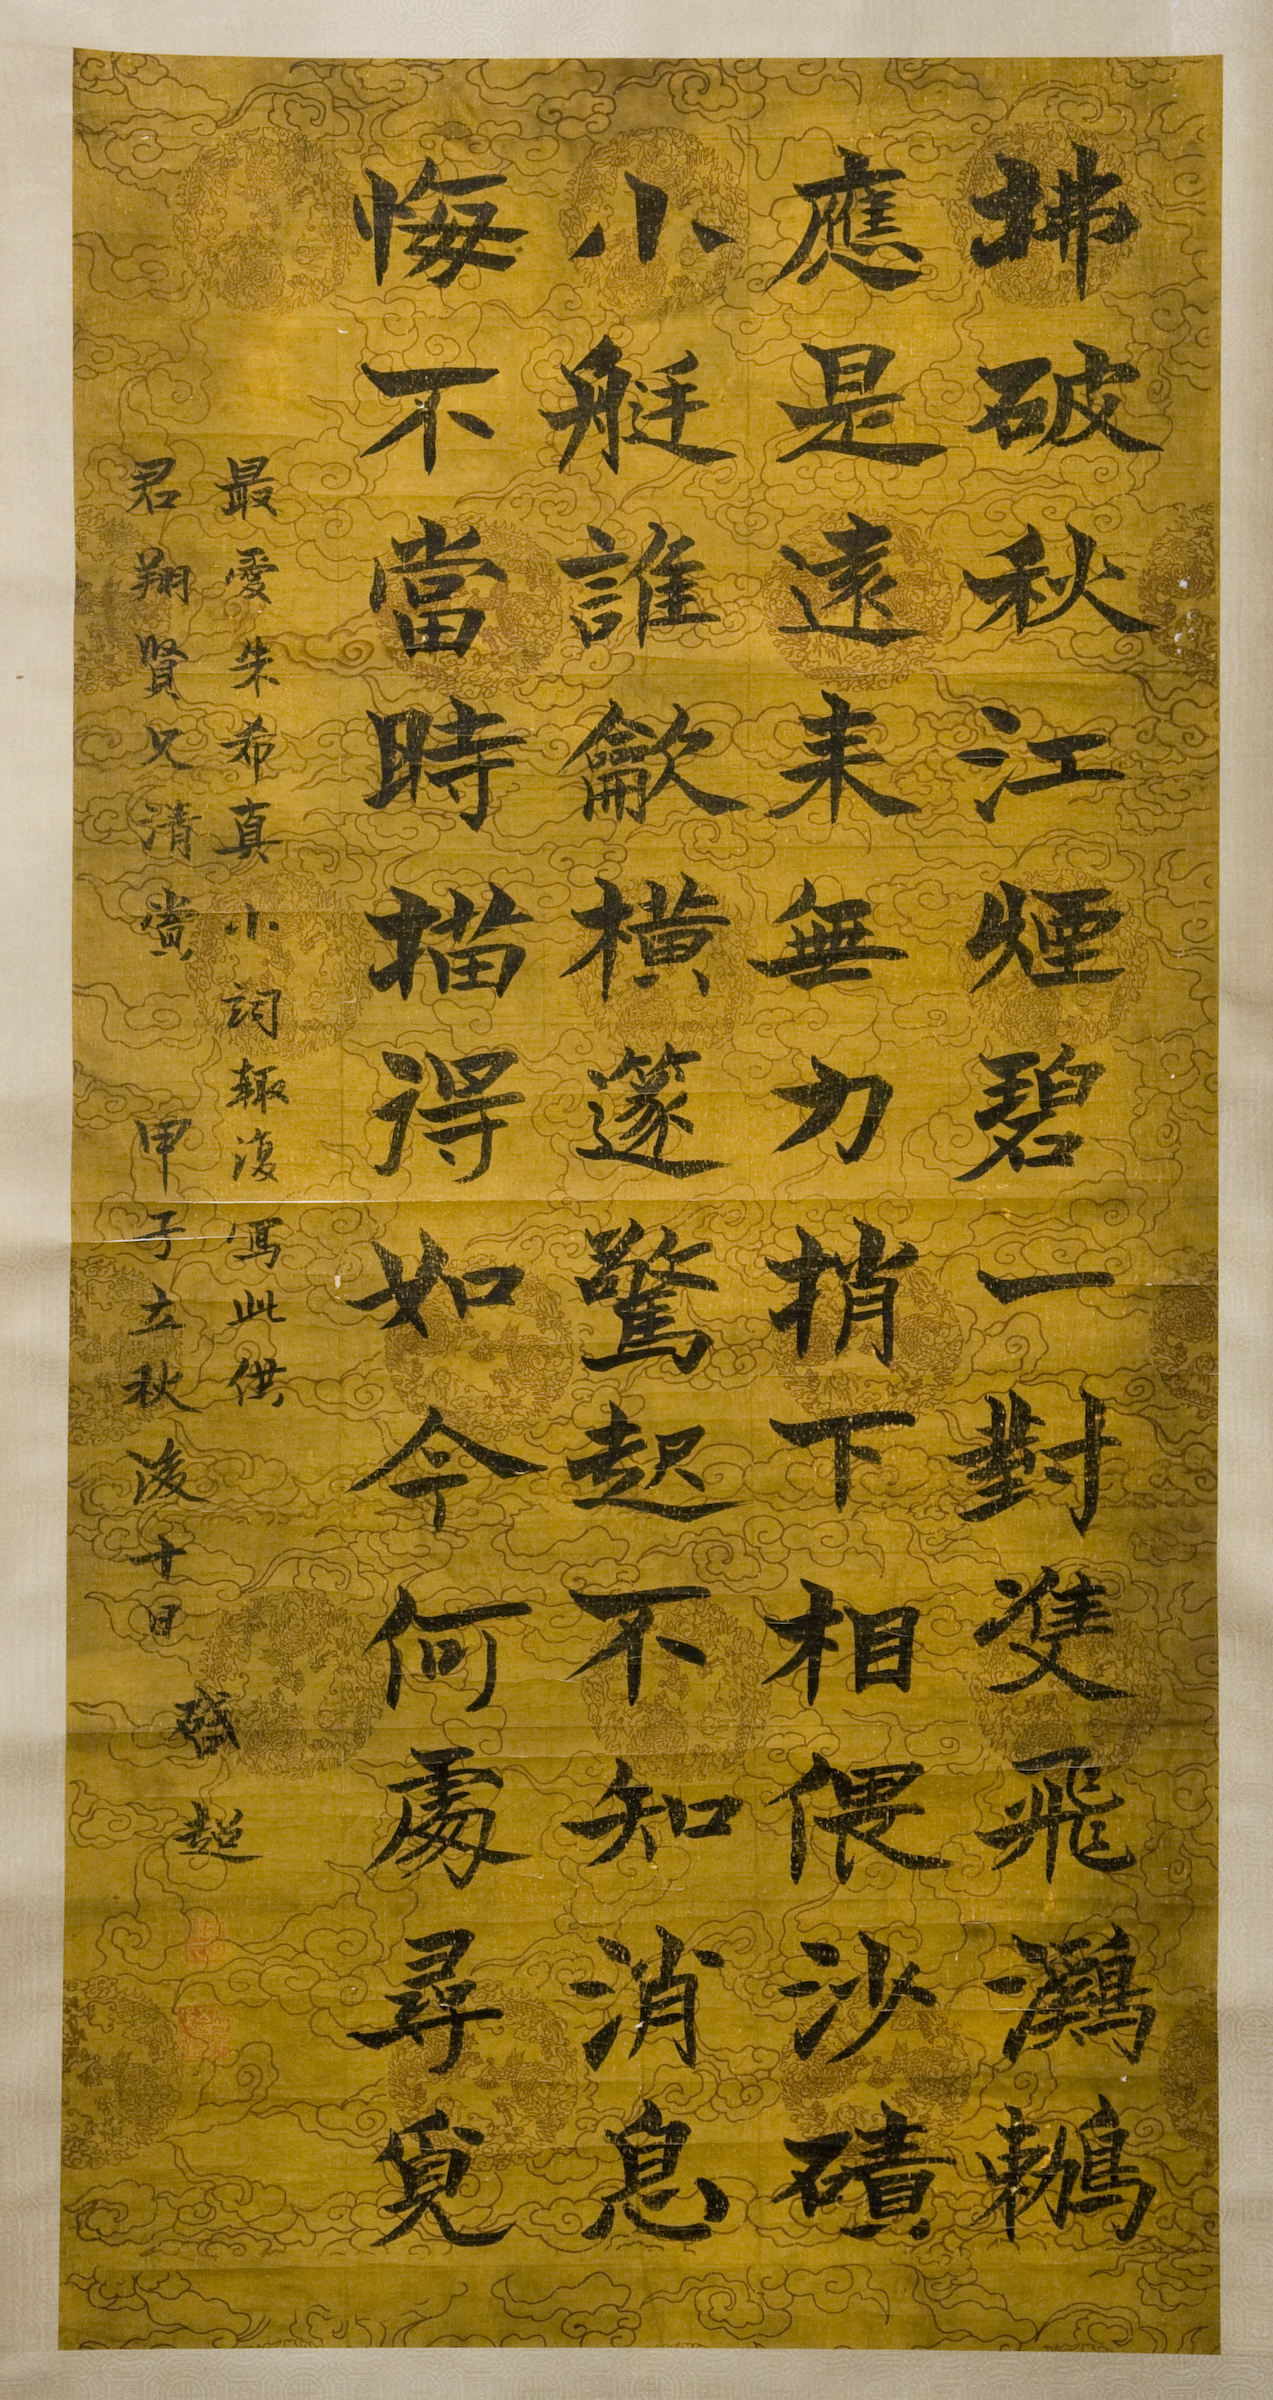 拂破秋江煙碧一對雙飛鸂鶒
應是遠来無力捎下相偎沙磧
小艇誰龡橫篴驚起不知消息
悔不當時描得如今何處尋覓
最愛朱希真小詞輙復寫此供
君翔賢兄清賞 甲子立秋後十日
啟超